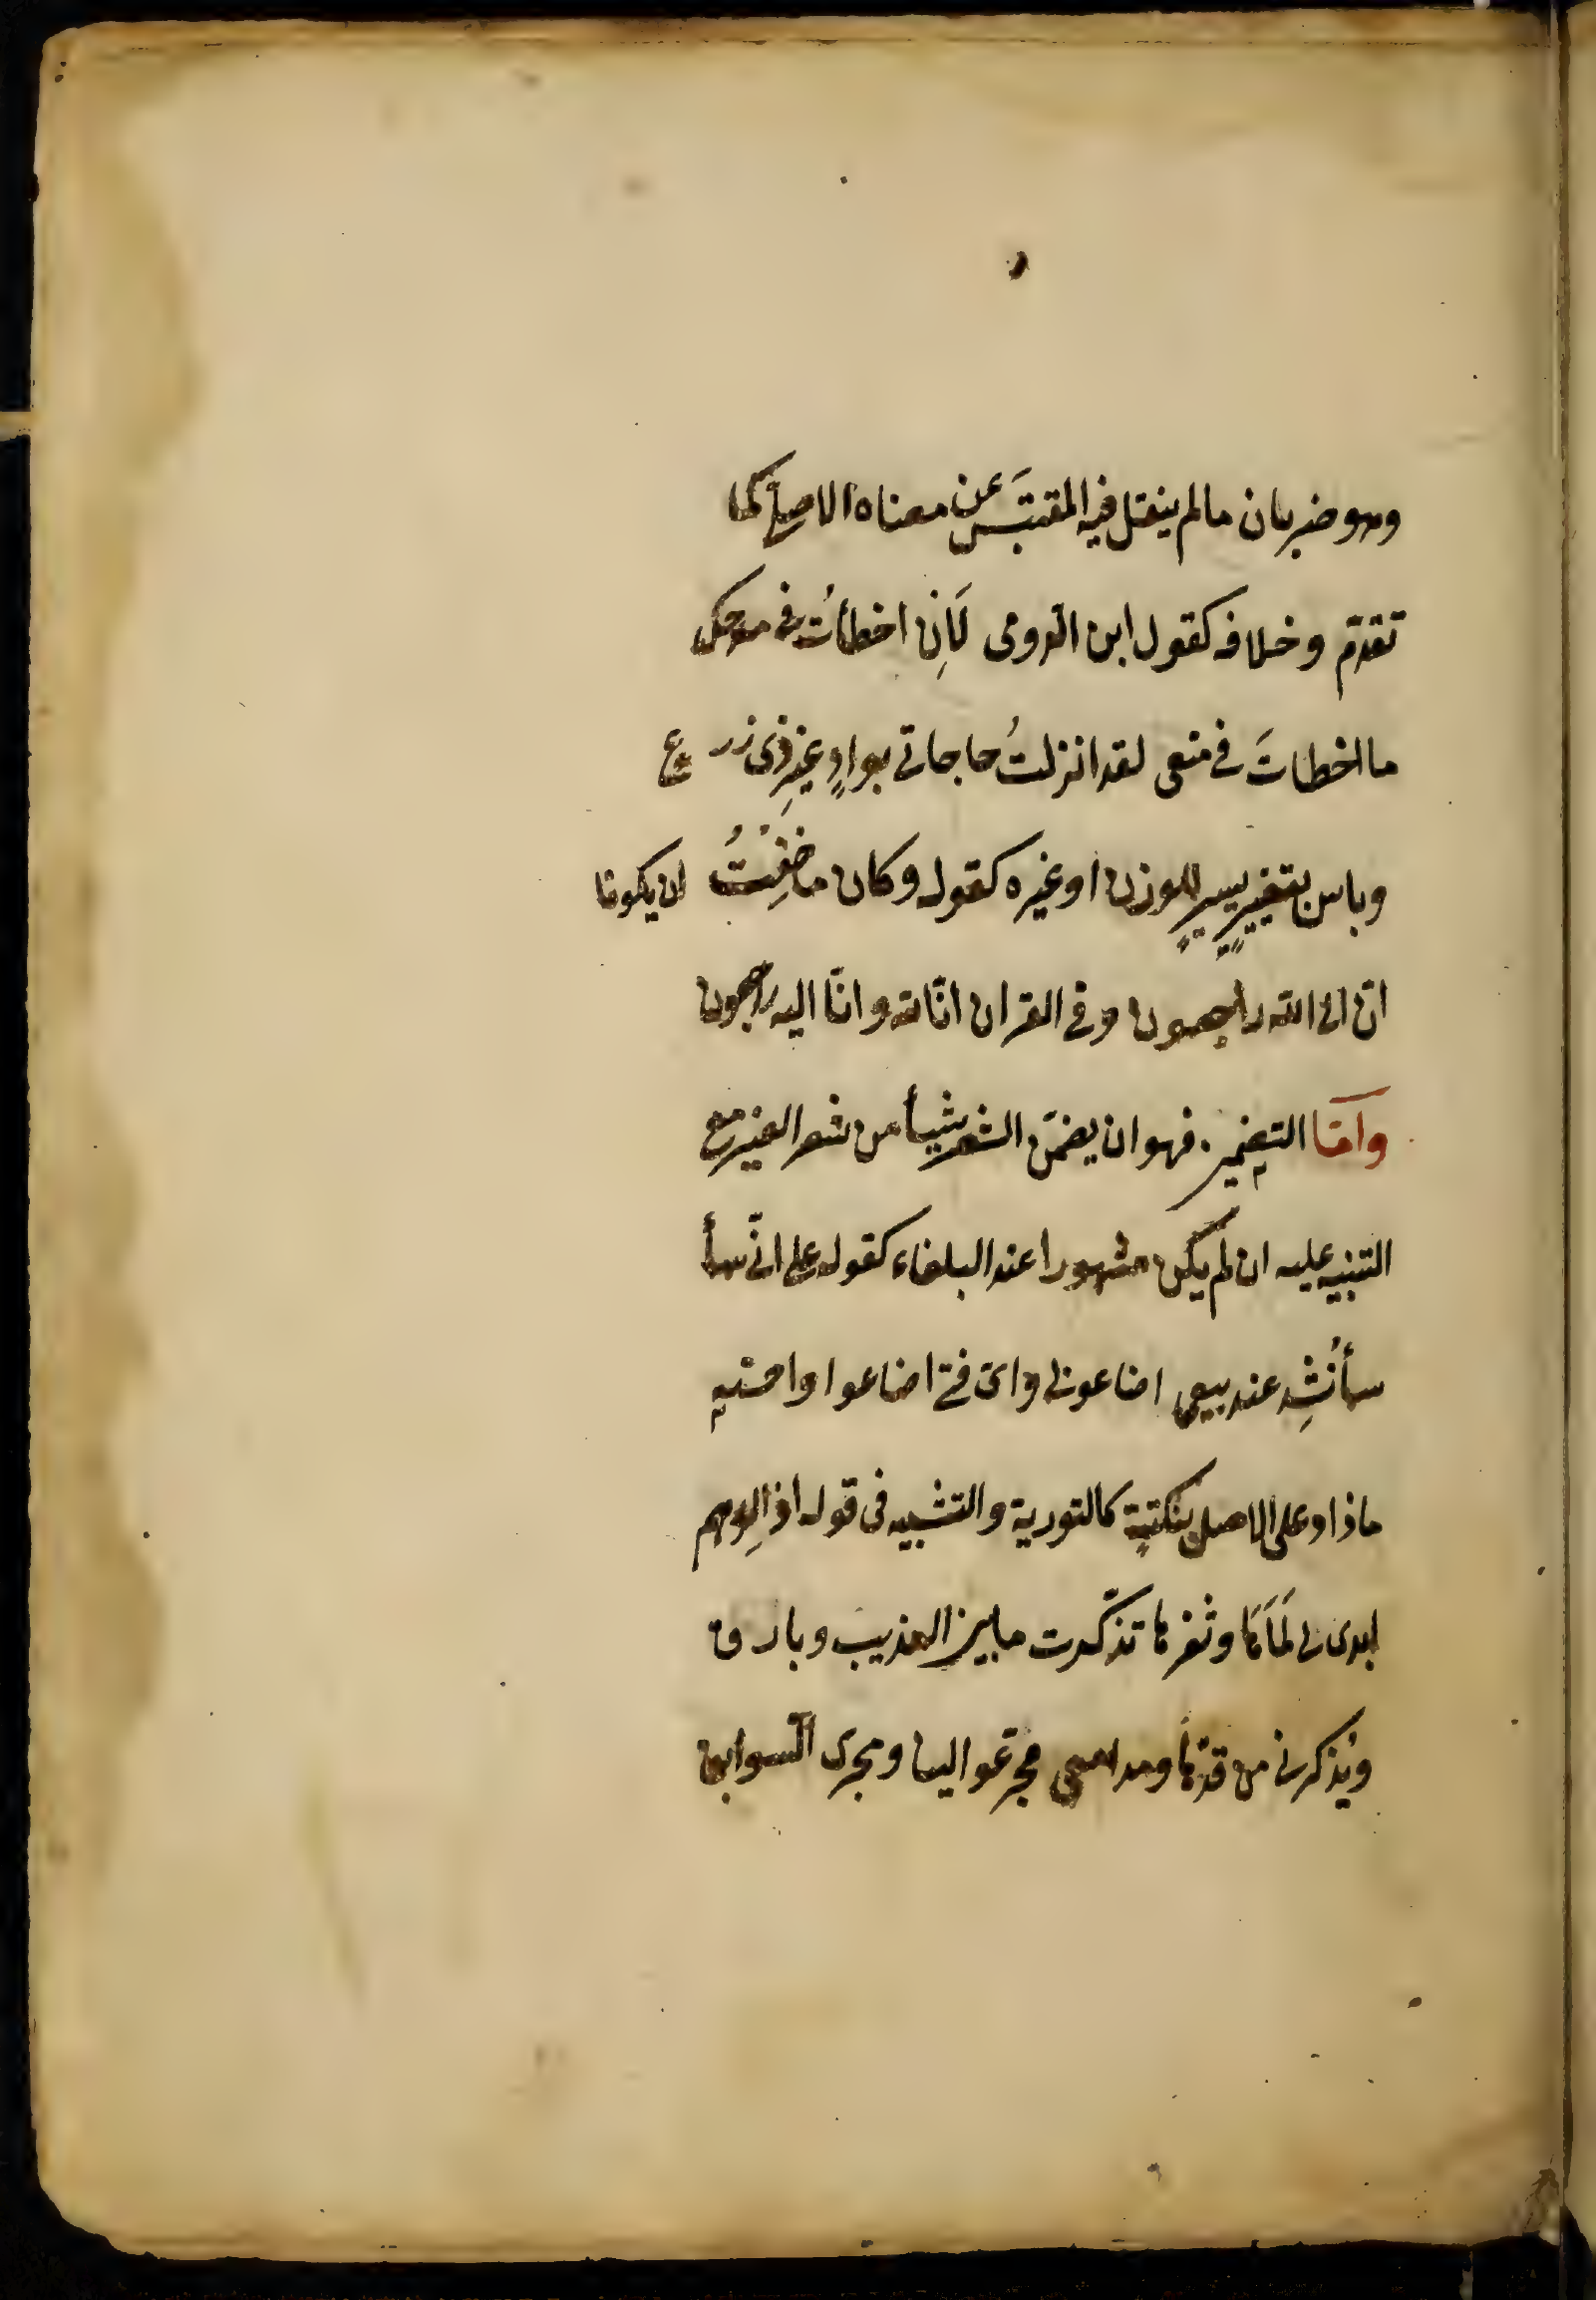 وهو ضربان مالم ينقل فيه المقتبَس عن معناه الاصلى كما
تقدّم وخلافه كقول ابن الرومى لَاِن اخطأتُ فى مدحك
ما اخطاتَ فى منعى لقد انزلتُ حاجاتى بوادٍ غيرِ ذى زرع
وباس بتغييرٍ يسيرٍ للوزن اوغيره كقوله وكان ما خِفْتُ ان يكونا
انّ الى الله راجعون وفى القران انّا لله وانّا اليه راجعون
وامّا التضمين فهو ان يضمّن الشعر شيأ من شعر الغير مع
التنبيه عليه ان لم يكن مشهورا عند البلغاء كقوله على انّى سأ
سأنُشِد عند بيعى اضاعونى واىّ فتى اضاعوا واحسنه
ماذاد على الاصل بنكتةٍ كالتورية والتشبيه فى قوله اذا الوهم
ابدى لى لَمَاهَا وثغرها تذكّرت مابين العذيب وبارق
ويُذكرنى من قدّها ومدامعى مجرّ عوالينا ومجرى السوابق